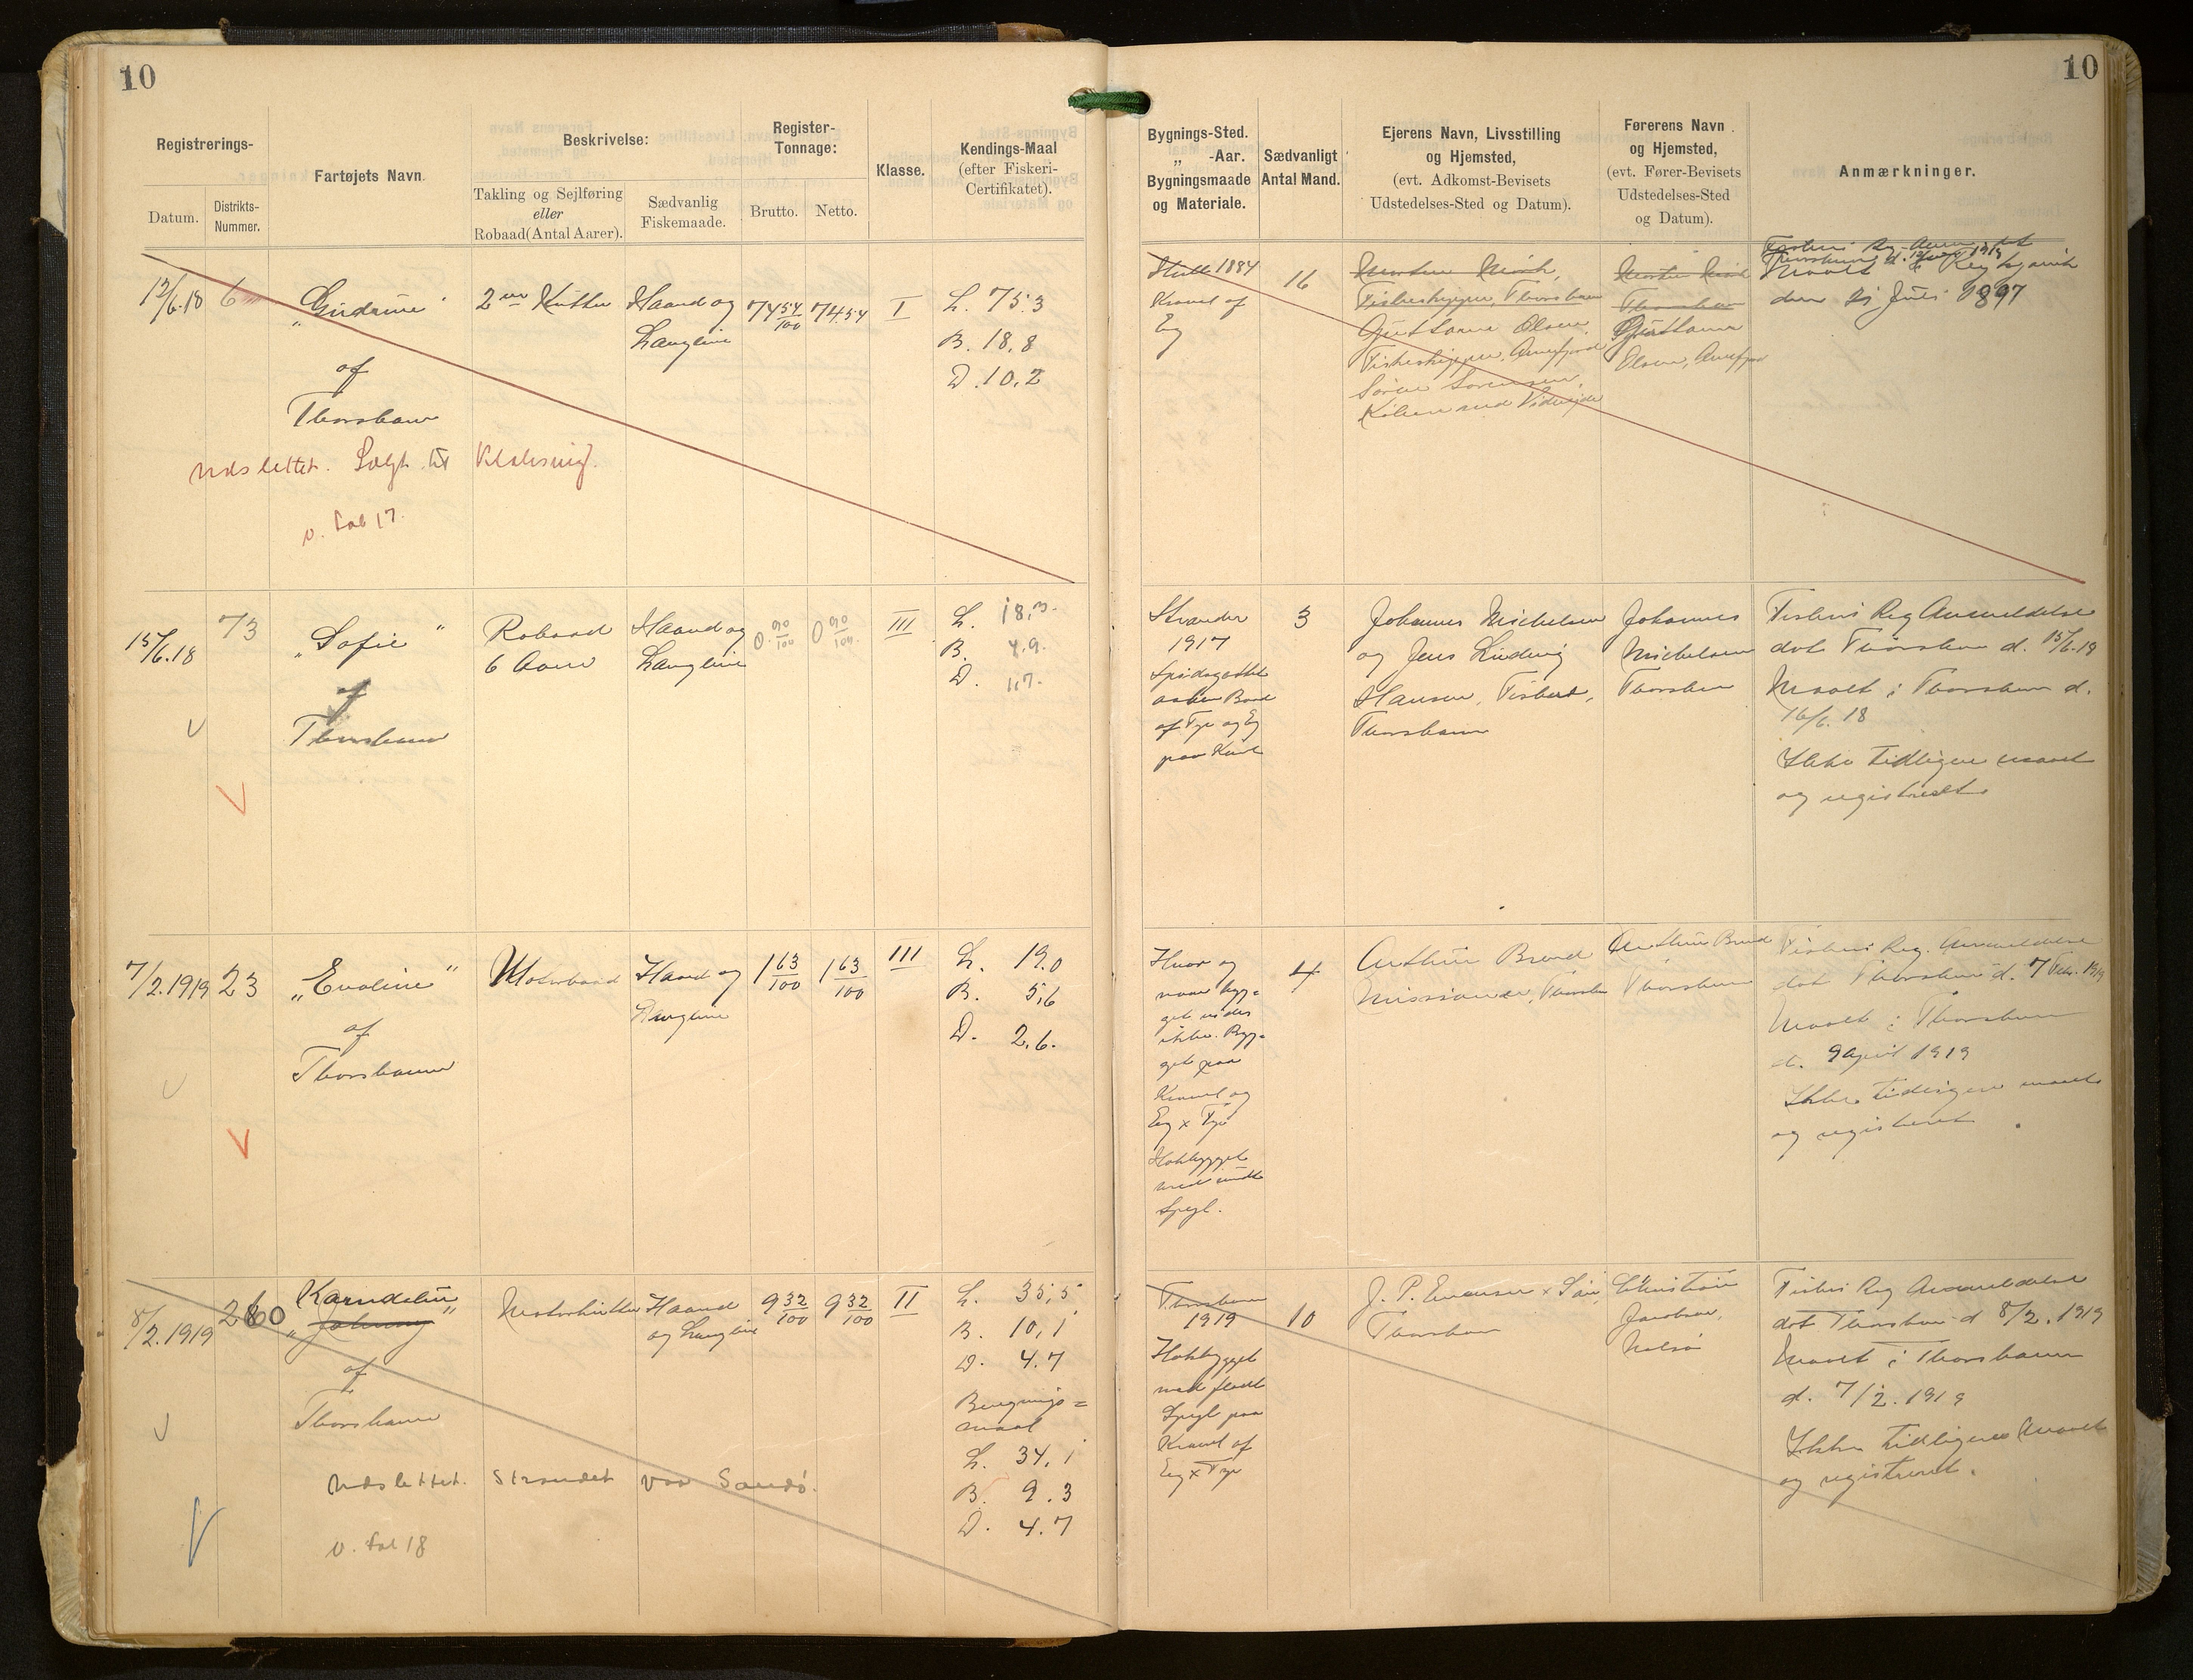 10
10
Registrerings-
Datum.
Distrikts-
Nummer.
Fartøjets Navn.
Beskrivelse:
Takling og Sejlføring
eller
Robaad (Antal Aarer).
Sædvanlig
Fiskemaade.
Register-
Tonnage:
Brutto.
Netto.
Klasse.
Kendings-Maal
(efter Fiskeri-
Certifikatet).
Bygnings-Sted.
„ -Aar.
Bygningsmaade
og Materiale.
Sædvanligt
Antal Mand.
Ejerens Navn, Livsstilling
og Hjemsted,
(evt. Adkomst-Bevisets
Udstedelses-Sted og Datum).
Førerens Navn
og Hjemsted,
(evt. Fører-Bevisets
Udstedelses-Sted
og Datum).
Anmærkninger.
12/6.18
6
„Gudrun“
af
Thorshavn
Udslettet. Solgt til Klaksvig.
v. Fol 17.
2 m Kutter
Haand og
Langline
74 54/100
74.54
I
L. 75.3
B. 18,8
D. 10,2
Hull 1884
Kravel af
Eg
16
Fiskeskipper, Thorshavn
Olsen,
Fiskeskipper, Arnefjord
Sören Sörensen,
Olsen, Arnefjord
Maalt i Reykjavik
1897
15/6.18
73
„Sofie“
af
Thorshavn
Robaad
6 Aarer
Haand og
Langline
0 90/100
0 90/100
III
L. 18,3.
B. 4.9.
D. 1,7.
Strander
1917
Spidsgattet
aaben Baad
af Fyr og Eg
paa Kravel
3
Johannes Michelsen
og Jens Ludvig
Hansen, Fiskere,
Thorshavn
Johannes
Michelsen
Thorshavn
Fiskeri Reg Anmeldelse
dat Thorshavn d. 15/6.18
Maalt i Thorshavn d.
16/6.18
Ikke tidligere maalt
og registreret
7/2.1919
23
„Evoline“
af
Thorshavn
Motorbaad
Haand og
Langline
1 63/100
1 63/100
III
L. 19.0
B. 5,6
D. 2.6.
Hvor og
naar byg=
get vides
ikke. Byg=
get paa
Kravel og
Eg x Fyr
Hækbygget
med
Spejl.
4
Arthur Brend
Missionær, Thorshavn
Arthur Brend
Thorshavn
Fiskeri Reg. Anmeldelse
dat Thorshavn d. 7 Febr. 1919
Maalt i Thorshavn
d. 9 April 1919
Ikke tidligere maalt
og registreret
8/2.1919
260
Karndelin
„Johnny“
af
Thorshavn
Udslettet. Strandet ved Sandö.
v. Fol 18
Motorkutter
Haand
og Langline
9 32/100
9 32/100
II
L. 35,5
B. 10,1
D. 4.7
maal
L. 34,1
B. 9.3
D. 4.7
Thorshavn
1919
Hækbygget
med fladt
Spejl paa
Kravel af
Eg x Fyr
10
J. P. Evensen x Sön,
Thorshavn
Christian
Jacobsen,
Nolsö
Fiskeri Reg Anmeldelse
dat Thorshavn d 8/2.1919
Maalt i Thorshavn
d. 7/2.1919
Ikke tidligere maalt
og registreret.